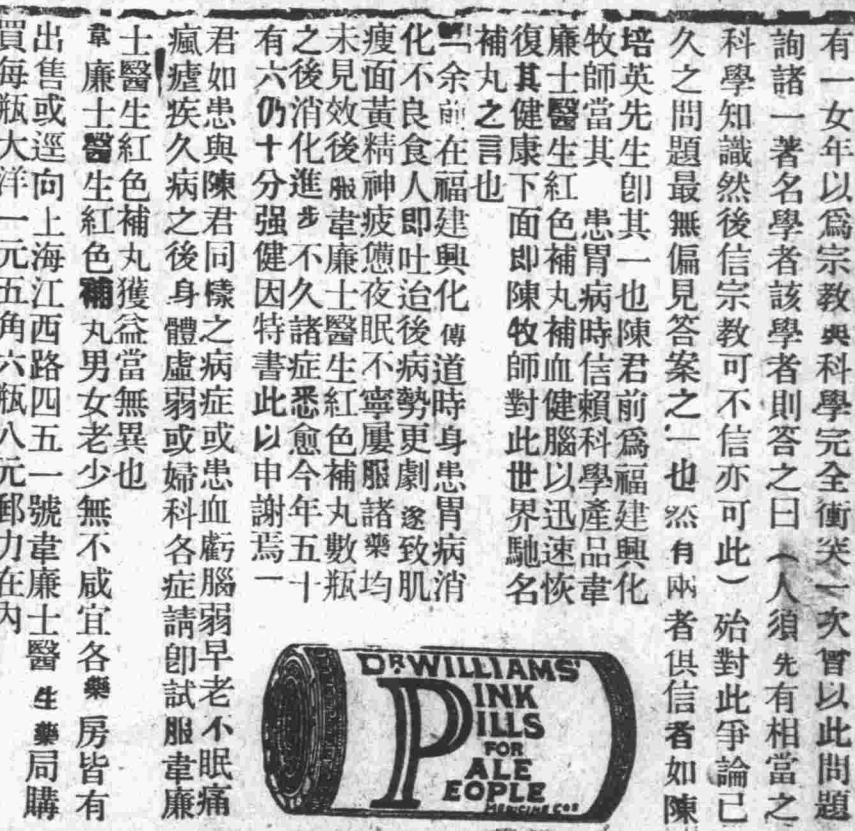 有一女年以爲宗教與科學完全衝突一次嘗以此問題
詢諸一著名學者該學者則答之曰（人須先有相當之
科學知識然後信宗教可不信亦可此）殆對此爭論已
久之問題最無偏見答案之一也然有兩者俱信者如陳
培英先生卽其一也陳君前爲福建興化
牧師當其 患胃病時信賴科學產品韋
廉士醫生紅色補丸補血健腦以迅速恢
復其健康下面即陳牧師對此世界馳名
補丸之言也
余前在福建興化傳道時身患胃病消
化不良食人即吐迨後病勢更劇遂致肌
瘦面黃精神疲憊夜眠不寧屢服諸藥均
未見效後服韋廉士醫生紅色補丸數瓶
之後消化進步不久諸症悉愈今年五十
有六仍十分强健因特書此以申謝焉一
君如患與陳君同樣之病症或患血虧腦弱早老不眠痛
瘋瘧疾久病之後身體虛弱或婦科各症請卽試服韋廉
士醫生紅色補丸獲益當無異也
韋廉士醫生紅色補丸男女老少無不咸宜各藥房皆有
出售或逕向上海江西路四五一號韋廉士醫生藥局購
買每瓶大洋一元五角六瓶八元郵力在內
DR WILLIAMS'
PINK
PILLS
FOR
PALE
PEOPLE
MEDICINE COS